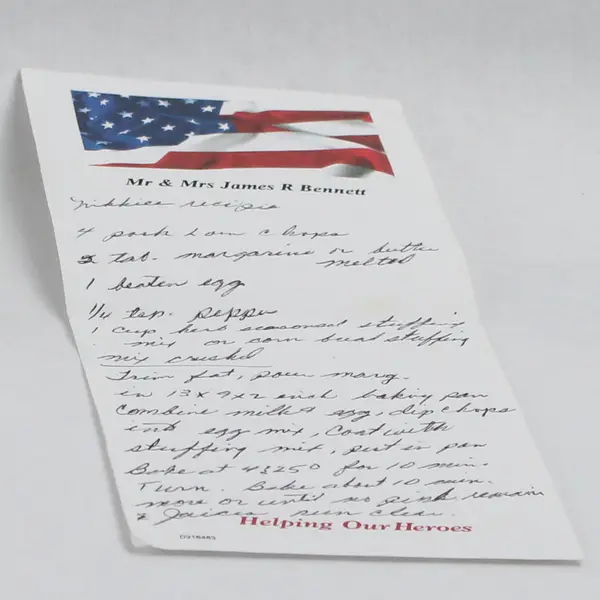 Mr & Mrs James R Bennett
Nikkies recipie
4 pork loin chops
2 tab. margarine or butter
melted
1 beaten egg
1/4 tsp. pepper
1 cup herb seasoned stuffing
mix or corn bread stuffing
mix crushed
Trim fat, pour marg.
in 13x9x2 inch baking pan
Combine milk & egg, dip chops
into egg mix, coat with
stuffing mix, put in pan
Bake at 425° for 10 min.
Turn. Bake about 10 min.
more or until no pink remain
& Juices run clear.
Helping Our Heroes
D216483